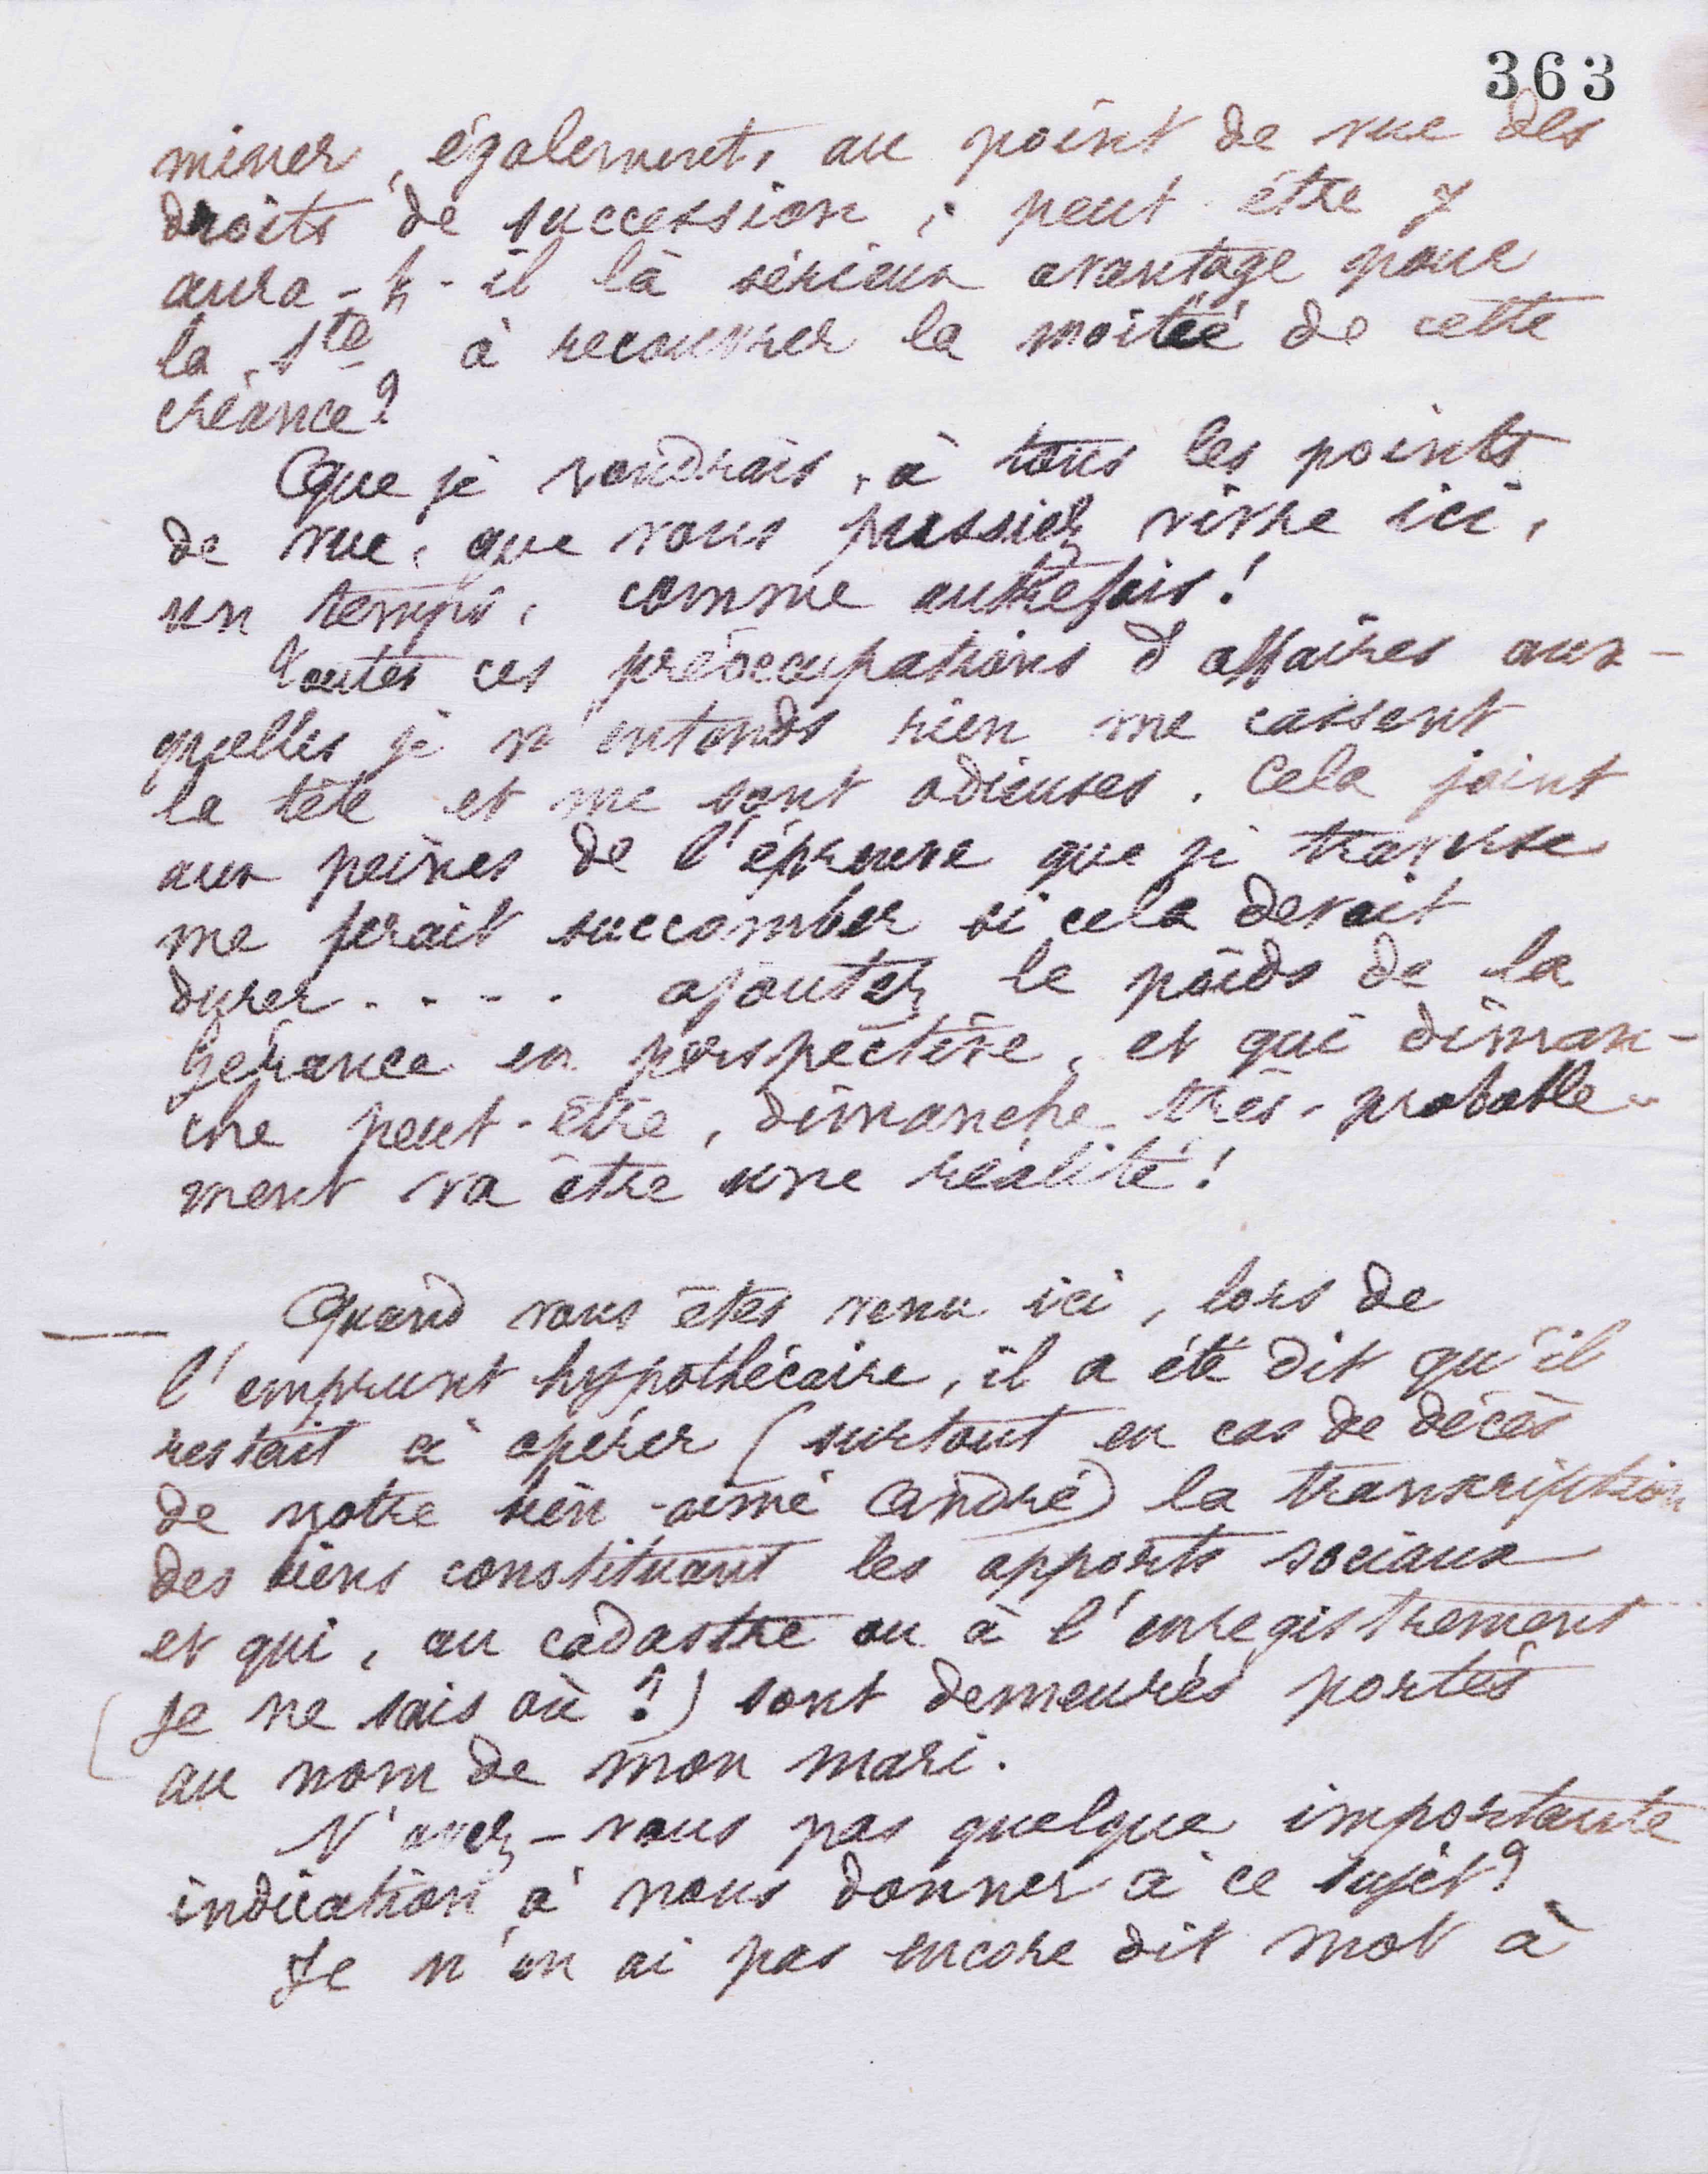 363
miner, également, au point de vue des
droits de succession ; peut être y
aura-t-il là sérieux avantage pour
la Sté à recouvrer la moitié de cette
créance ?
Que je voudrais, à tous les points
de vue, que vous pussiez vivre ici,
un temps, comme autrefois !
Toutes ces préoccupations d'affaires aux-
quelles je n'entends rien me cassent
la tête et me sont odieuses. Cela joint
aux peines de l'épreuve que je traverse
me ferait succomber si cela devait
durer.... ajoutez le poids de la
gérance en perspective, et qui diman-
che peut-être, dimanche très-probable-
ment va être une réalité !
— Quand vous êtes venu ici, lors de
l'emprunt hypothécaire, il a été dit qu'il
restait à opérer (surtout en cas de décès
de notre bien-aimé André) la transcription
des biens constituant les apports sociaux
et qui, au cadastre ou à l'enregistrement
(je ne sais où ?) sont demeurés portés
au nom de mon mari.
N'avez-vous pas quelque importante
indication à nous donner à ce sujet ?
Je n'en ai pas encore dit mot à